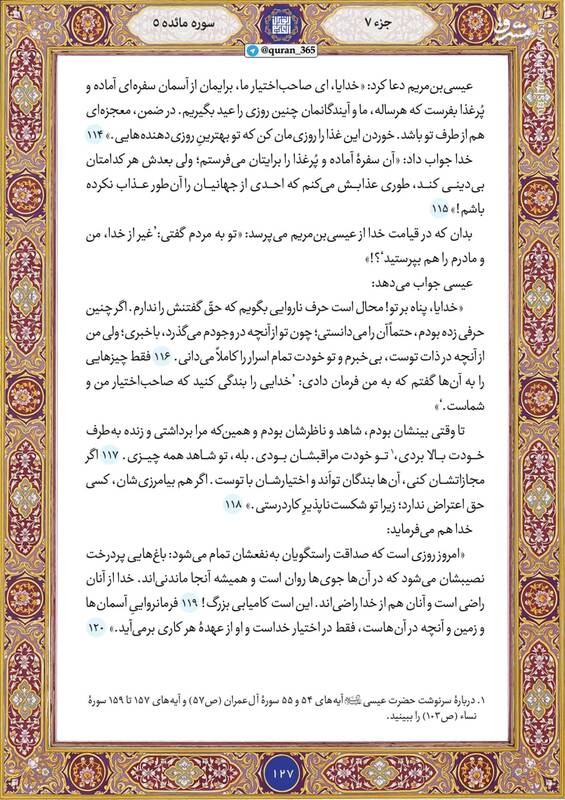 جزء ۷
سوره مائده ۵
@quran_365
عیسی‌بن‌مریم دعا کرد: «خدایا، ای صاحب‌اختیار ما، برایمان از آسمان سفره‌ای آماده و
پُرغذا بفرست که هرساله، ما و آیندگانمان چنین روزی را عید بگیریم. در ضمن، معجزه‌ای
هم از طرف تو باشد. خوردن این غذا را روزی‌مان کن که تو بهترینِ روزی‌دهنده‌هایی.» ۱۱۴
خدا جواب داد: «آن سفرهٔ آماده و پُرغذا را برایتان می‌فرستم؛ ولی بعدش هر کدامتان
بی‌دینی کند، طوری عذابش می‌کنم که احدی از جهانیان را آن‌طور عذاب نکرده
باشم!» ۱۱۵
بدان که در قیامت خدا از عیسی‌بن‌مریم می‌پرسد: «تو به مردم گفتی: ‘غیر از خدا، من
و مادرم را هم بپرستید’؟!»
عیسی جواب می‌دهد:
«خدایا، پناه بر تو! محال است حرف ناروایی بگویم که حقّ گفتنش را ندارم. اگر چنین
حرفی زده بودم، حتماً آن را می‌دانستی؛ چون تو از آنچه در وجودم می‌گذرد، باخبری؛ ولی من
از آنچه در ذات توست، بی‌خبرم و تو خودت تمام اسرار را کاملاً می‌دانی. ۱۱۶ فقط چیزهایی
را به آن‌ها گفتم که به من فرمان دادی: ‘خدایی را بندگی کنید که صاحب‌اختیار من و
شماست.’»
تا وقتی بینشان بودم، شاهد و ناظرشان بودم و همین‌که مرا برداشتی و زنده به‌طرف
خودت بالا بردی،۱ تو خودت مراقبشان بودی. بله، تو شاهد همه چیزی. ۱۱۷ اگر
مجازاتشان کنی، آن‌ها بندگان تواَند و اختیارشان با توست. اگر هم بیامرزی‌شان، کسی
حق اعتراض ندارد؛ زیرا تو شکست‌ناپذیرِ کاردرستی.» ۱۱۸
خدا هم می‌فرماید:
«امروز روزی است که صداقت راستگویان به‌نفعشان تمام می‌شود: باغ‌هایی پردرخت
نصیبشان می‌شود که در آن‌ها جوی‌ها روان است و همیشه آنجا ماندنی‌اند. خدا از آنان
راضی است و آنان هم از خدا راضی‌اند. این است کامیابی بزرگ! ۱۱۹ فرمانروایی آسمان‌ها
و زمین و آنچه در آن‌هاست، فقط در اختیار خداست و او از عهدهٔ هر کاری برمی‌آید.» ۱۲۰
۱. دربارهٔ سرنوشت حضرت عیسی آیه‌های ۵۴ و ۵۵ سورهٔ آل‌عمران (ص۵۷) و آیه‌های ۱۵۷ تا ۱۵۹ سورهٔ
نساء (ص۱۰۳) را ببینید.
۱۲۷